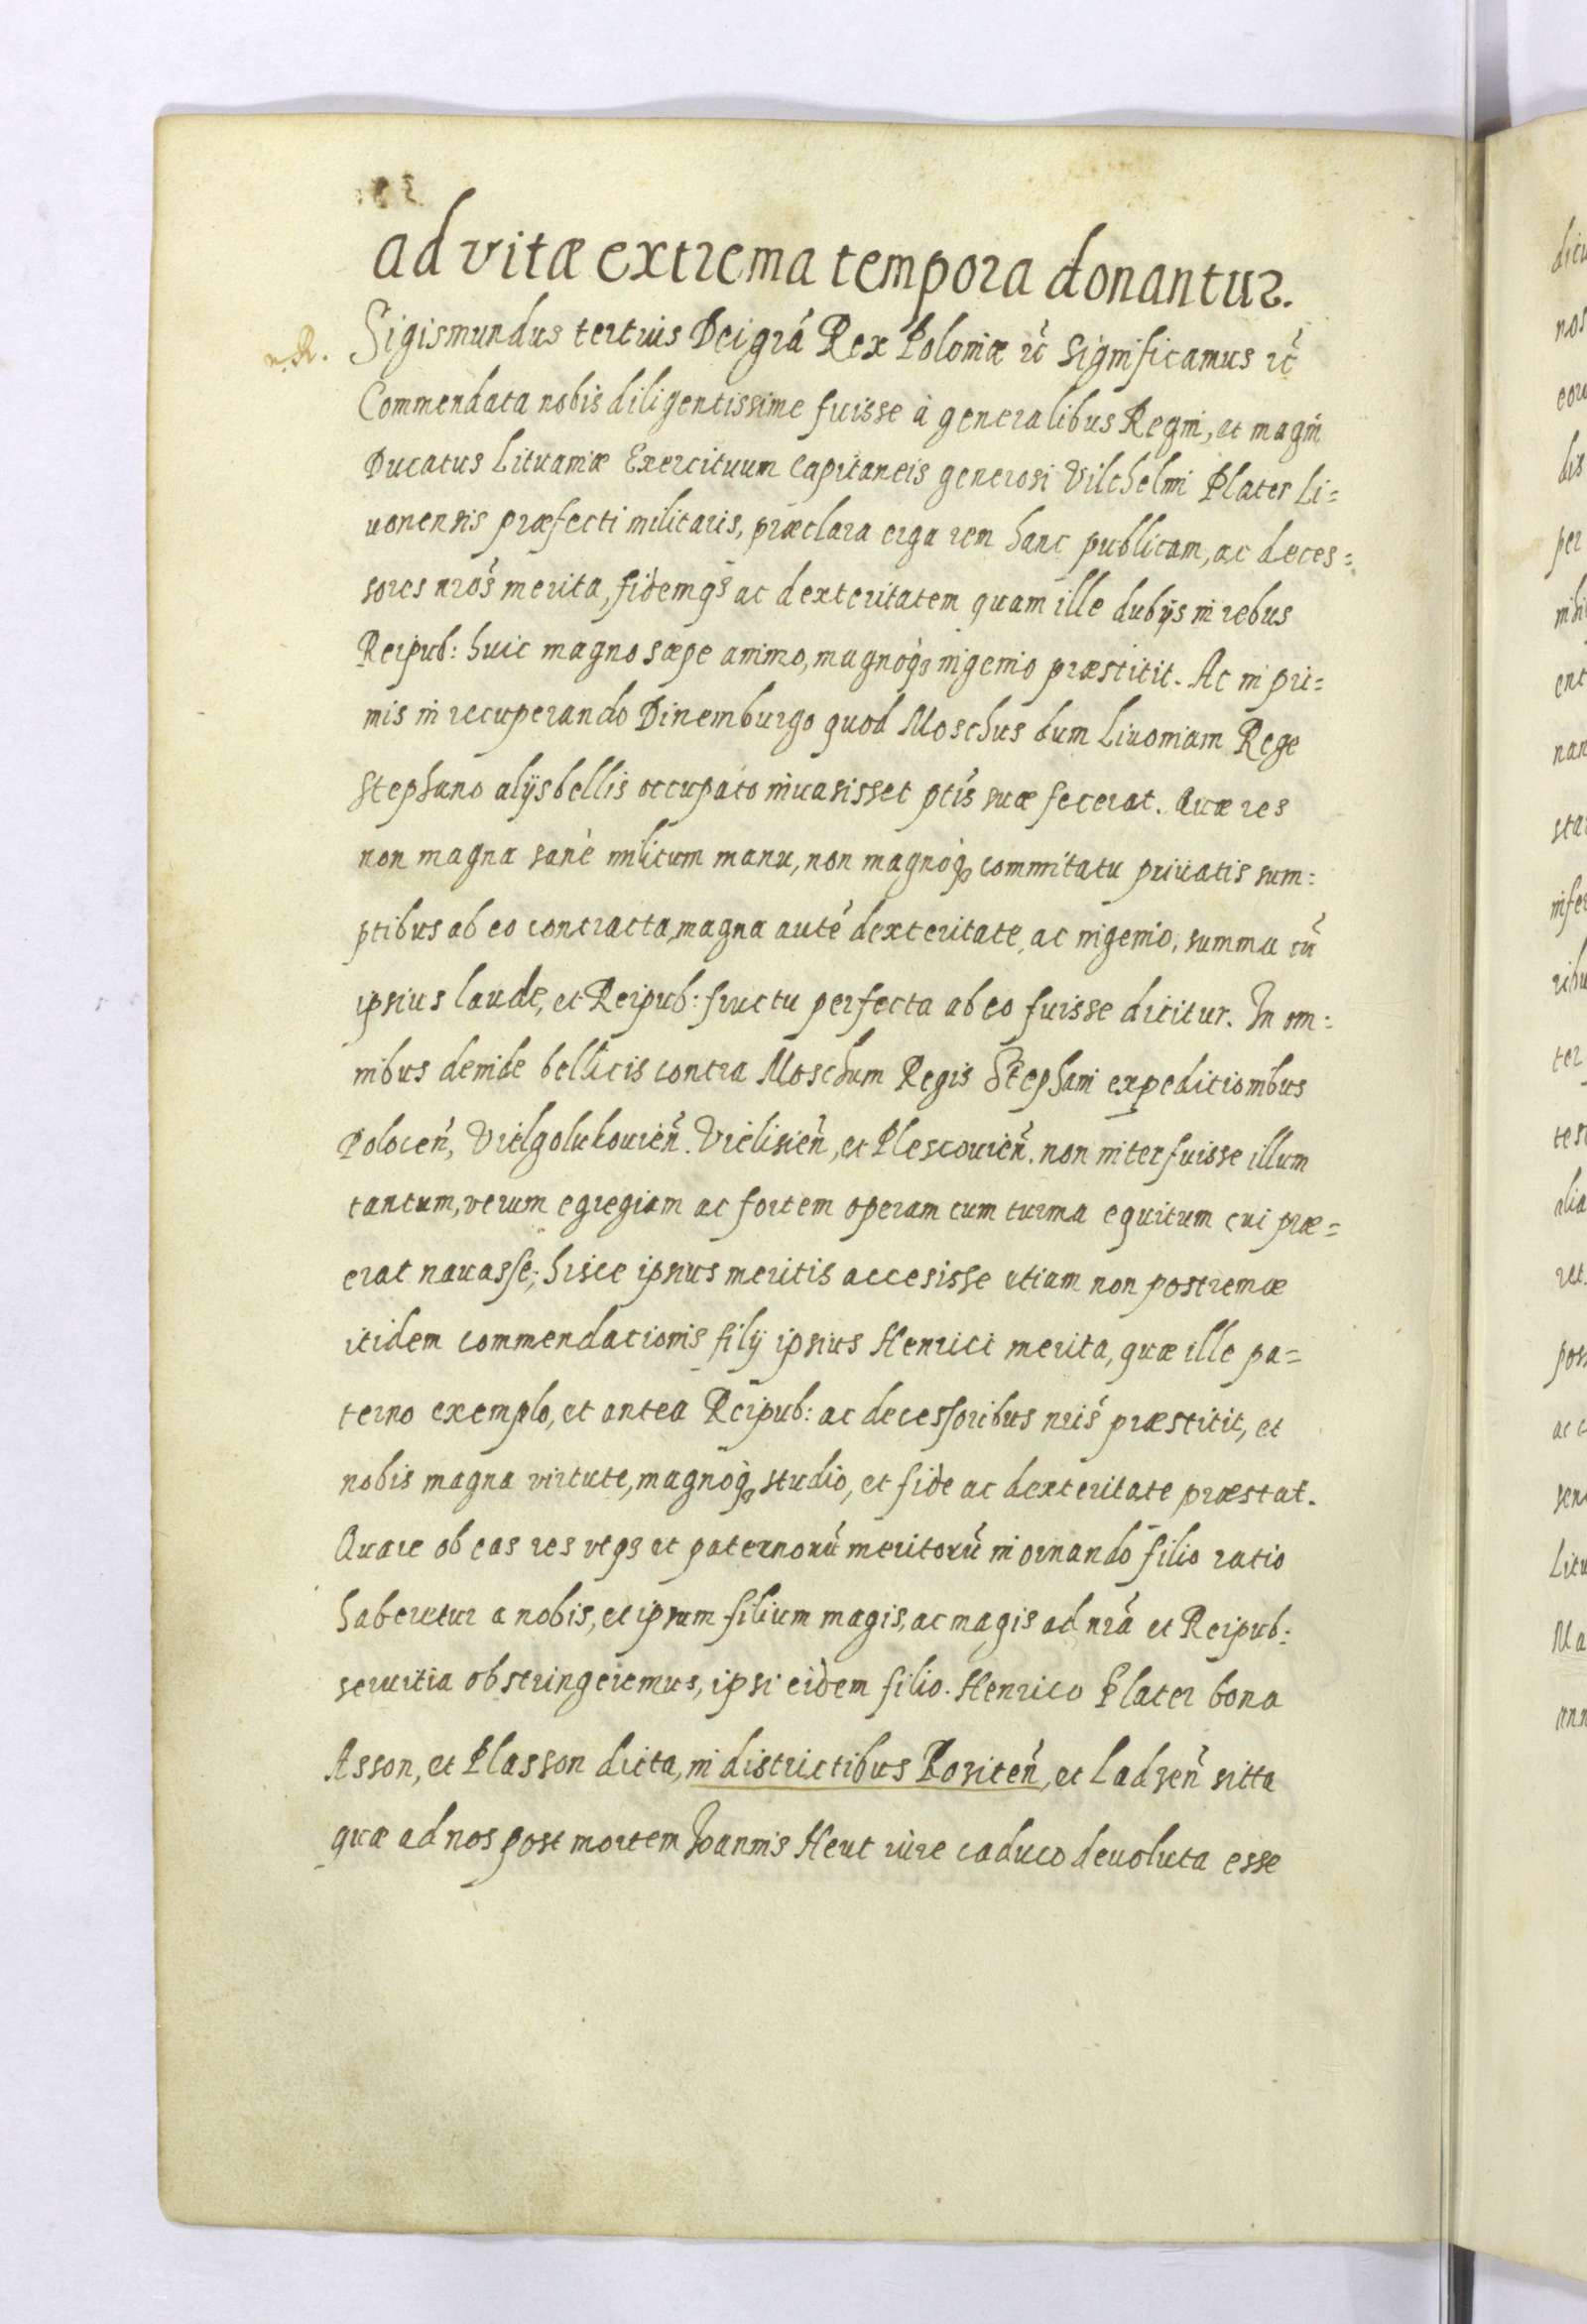 ad vitæ extrema tempora donantur.
Sigismundus tertius Dei grã Rex Poloniæ ec̃ Significamus ec̃
Commendata nobis diligentissime fuisse à generalibus Regni, et magni
Ducatus Lituaniæ Exercituum Capitaneis generosi Vilchelmi Plater Li=
uonensis præfecti militaris, præclara erga rem hanc publicam, ac deces=
sores nros̃ merita, fidemqȝ ac dexteritatem quam ille dubijs in rebus
Reipub: huic magno sæpe animo, magnoqȝ ingenio præstitit. Ac in pri=
mis in recuperando Dinemburgo quod Moschus dum Liuoniam Rege
Stephano alijs bellis occupato inuasisset ptis̃ suæ fecerat. Quæ res
non magna sanè militum manu, non magnoqȝ commitatu priuatis sum=
ptibus ab eo contracta, magna autẽ dexteritate, ac ingenio, summa cũ
ipsius laude, et Reipub: fructu perfecta ab eo fuisse dicitur. In om=
nibus deinde bellicis contra Moschum Regis Stephani expeditionibus
Poloceñ, Vielgolukovieñ. Vielisieñ, et Plescovieñ. non interfuisse illum
tantum, verum egregiam ac fortem operam cum turma equitum cui præ=
erat nauasse; hisce ipsius meritis accesisse etiam non postremæ
itidem commendationis filij ipsius Henrici merita, quæ ille pa=
terno exemplo, et antea Reipub: ac decessoribus nris̃ præstitit, et
nobis magna virtute, magnoqȝ studio, et fide ac dexteritate præstat.
Quare ob eas res vtqȝ et paternorũ meritorũ in ornando filio ratio
haberetur a nobis, et ipsum filium magis, ac magis ad nrã et Reipub:
seruitia obstringeremus, ipsi eidem filio. Henrico Plater bona
Asson, et Plasson dicta, in districtibus Rositeñ, et Ladseñ sitta
quæ ad nos post mortem Joannis Heut iure caduco deuoluta esse